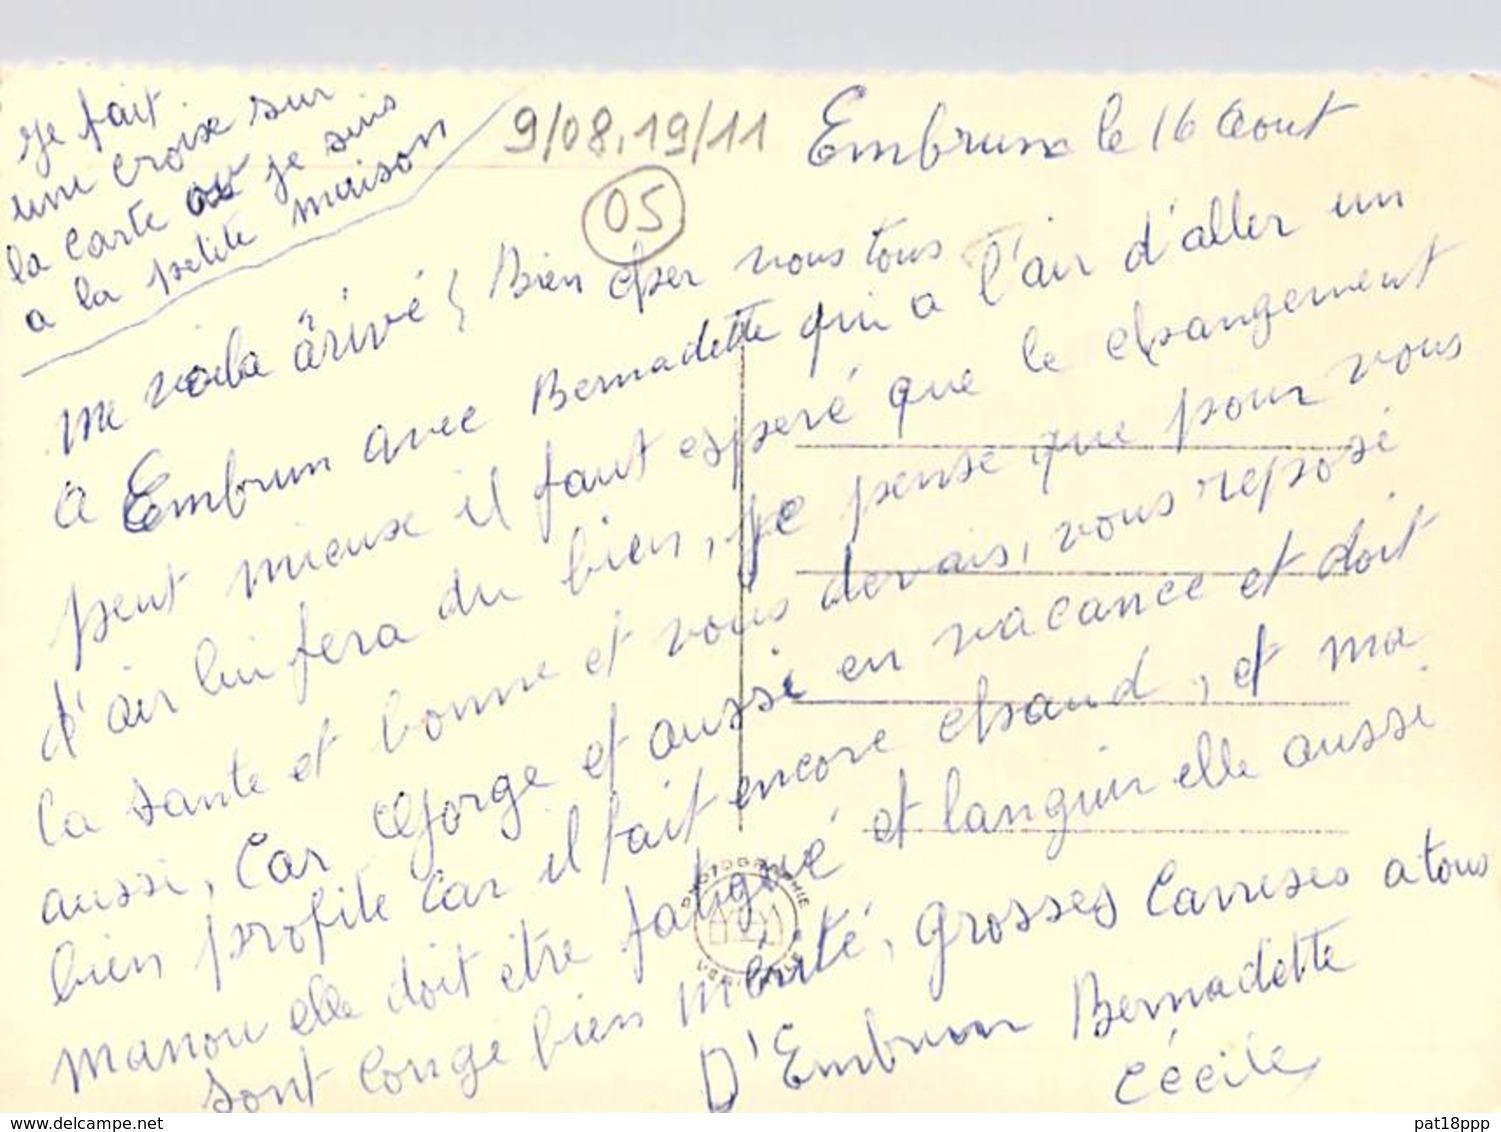 Je fait
une croix sur
la carte ou je suis
a la petite maison
9/08.19/11
05
Embrun le 16 Aout
me voila ärivé Bien cher vous tous
a Embrun avec Bernadette qui a l'air d'aller un
peut mieux il faut esperé que le changement
d'air lui fera du bien, je pense que pour vous
la sante et bonne et vous devais, vous reposé
aussi, Car Gorge et aussi en vacance et doit
bien profite Car il fait encore chaud, et ma
manou elle doit etre fatigué et languir elle aussi
sont congé bien mérité, grosses Carresses a tous
D'Embrun Bernadette
Cécile
PHOTOGRAPHIE
VERITABLE
delcampe.net
pat18ppp